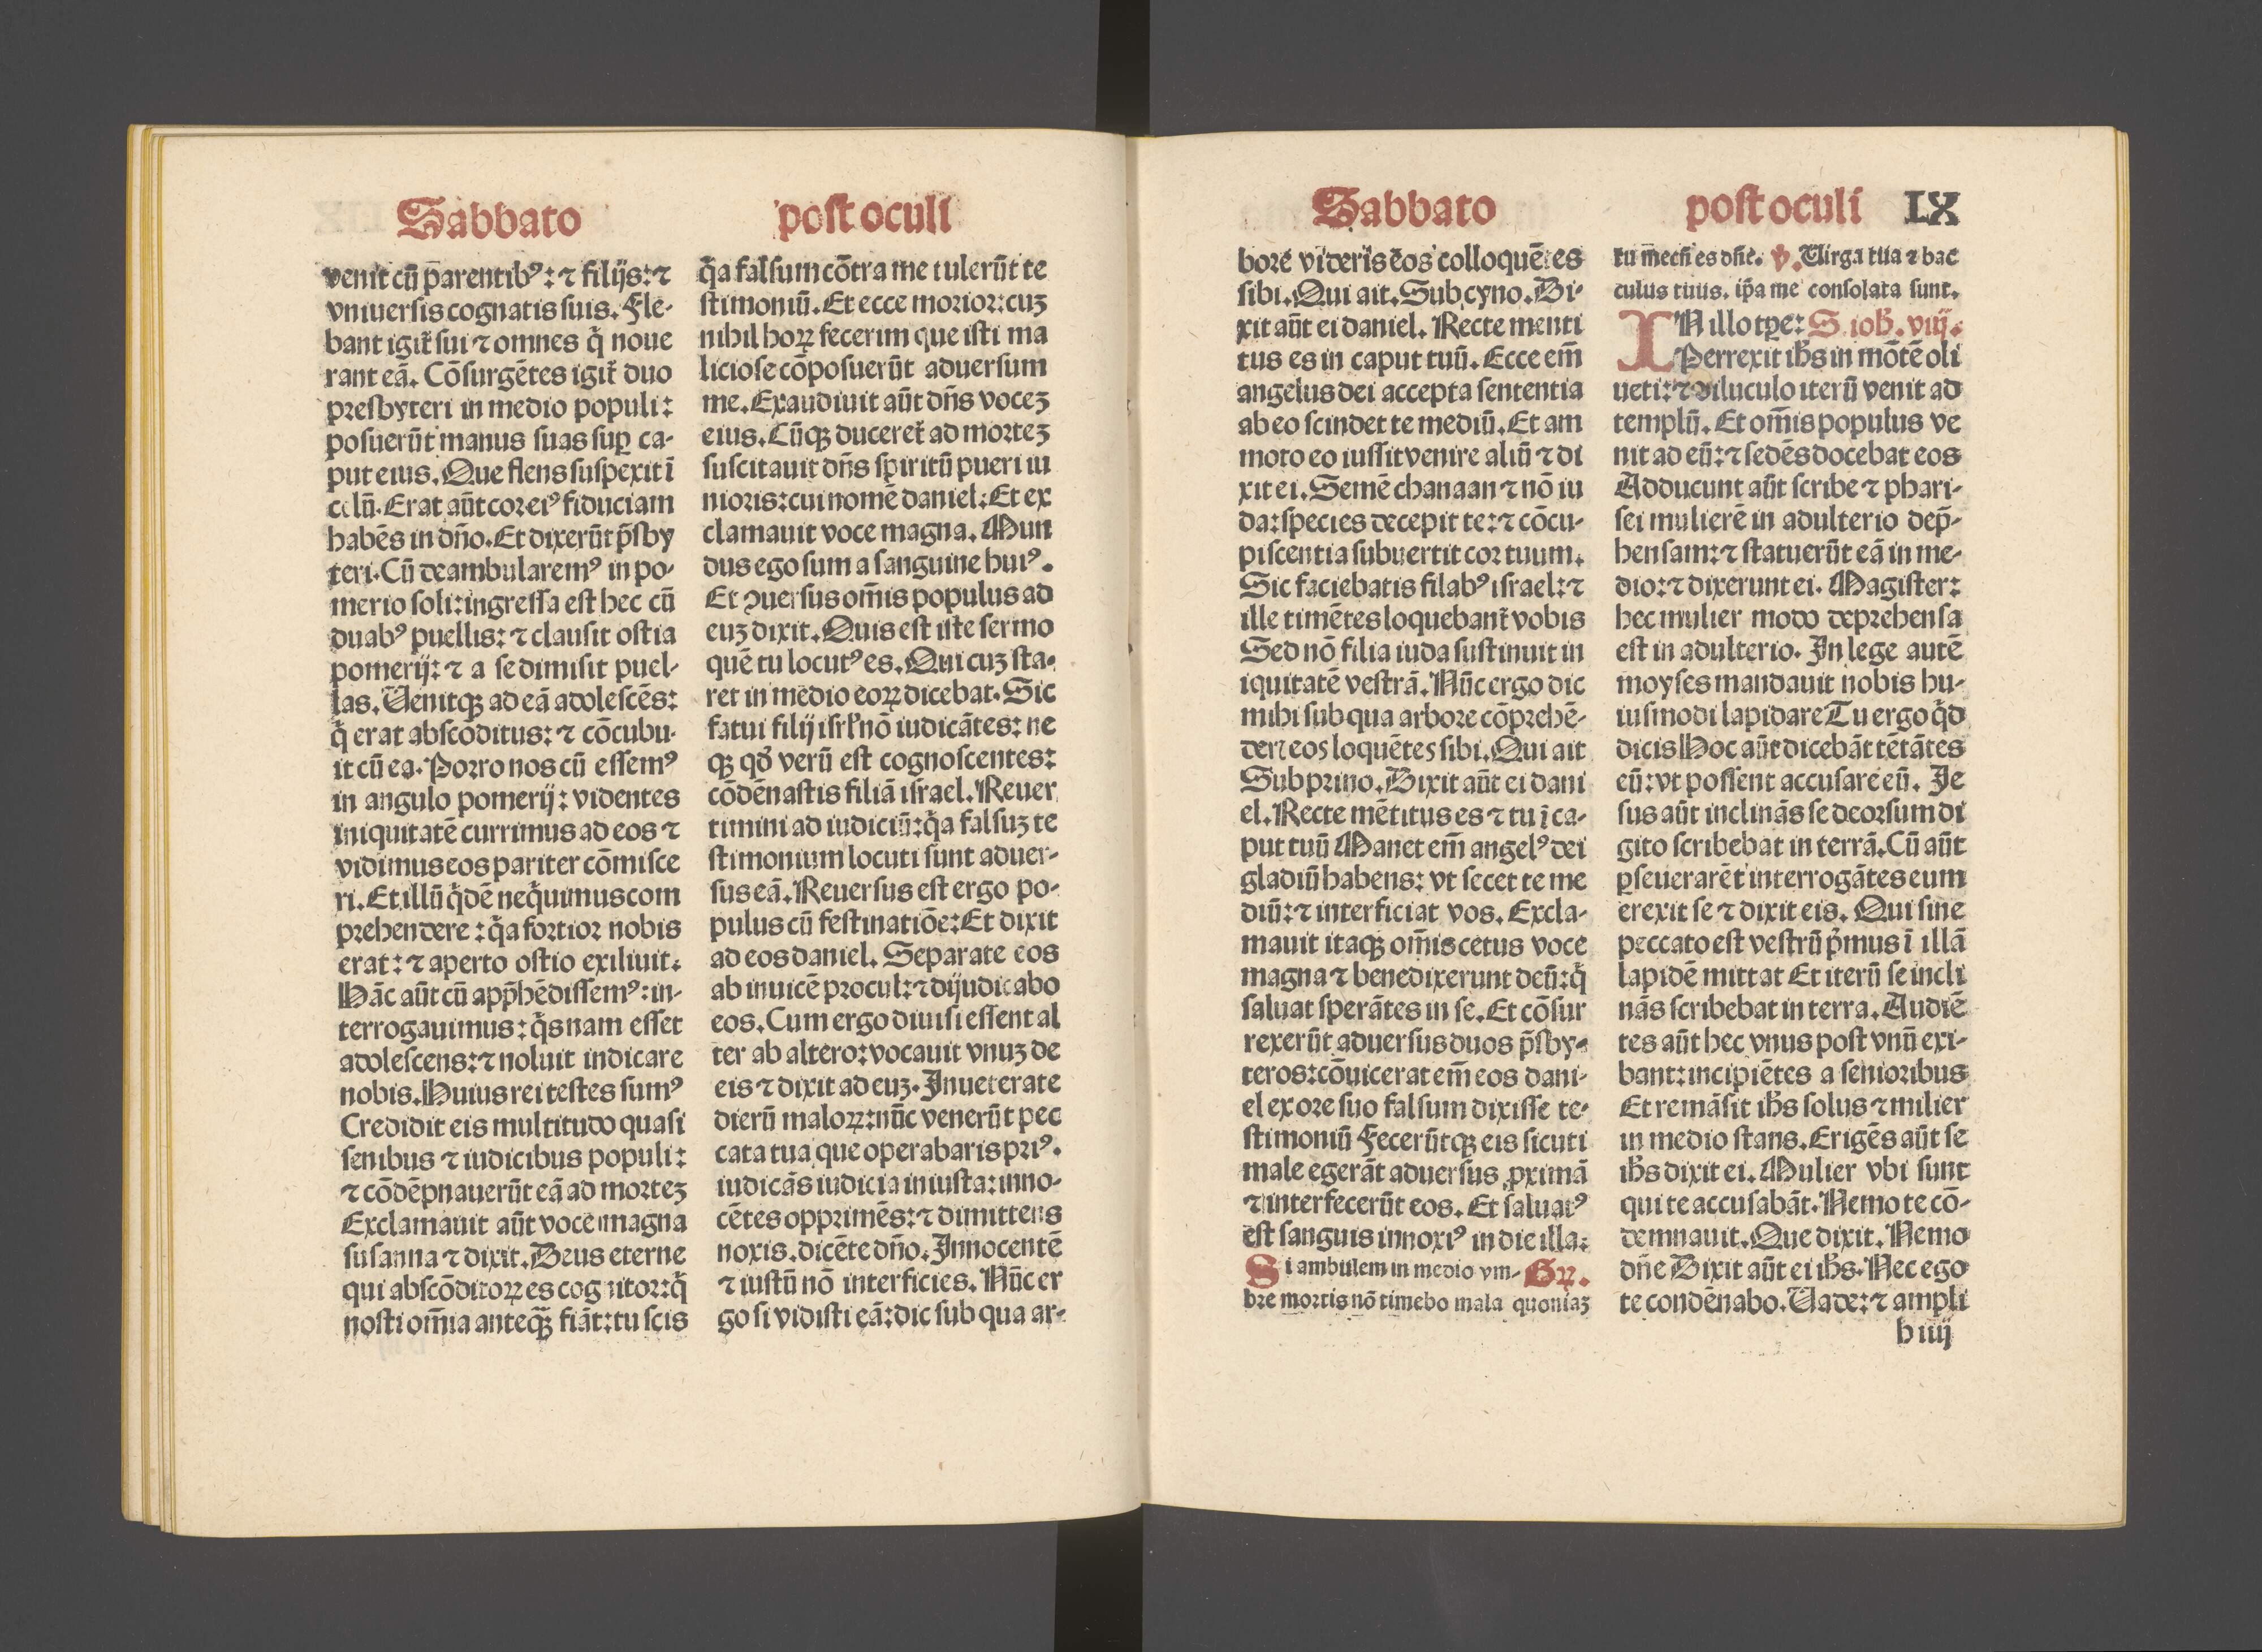 Sabbato post oculi
venit cū parentibꝰ: ⁊ filijs: ⁊
vniuersis cognatis suis. Fle-
bant igit̃ sui ⁊ omnes q̇ noue
rant eā. Cōsurgētes igit̃ duo
presbyteri in medio populi:
posuerūt manus suas suꝑ ca-
put eius. Que flens suspexit ī
celū. Erat aūt cor eiꝰ fiduciam
habēs in dn̄o. Et dixerūt p̄sby
teri. Cū deambularemꝰ in po-
merio soli: ingressa est hec cū
duabꝰ puellis: ⁊ clausit ostia
pomerij: ⁊ a se dimisit puel-
las. Uenitqꝫ ad eā adolescēs:
q̇ erat abscōditus: ⁊ cōcubu-
it cū ea. Porro nos cū essemꝰ
in angulo pomerij: videntes
iniquitatē currimus ad eos ⁊
vidimus eos pariter cōmisce
ri. Et illū q̇dē neq̇uimus com
prehendere: q̇a fortior nobis
erat: ⁊ aperto ostio exiliuit.
Hāc aūt cū app̄hēdissemꝰ: in-
terrogauimus: q̇snam esset
adolescens: ⁊ noluit indicare
nobis. Huius rei testes sumꝰ
Credidit eis multitudo quasi
senibus ⁊ iudicibus populi:
⁊ cōdēpnauerūt eā ad morteꝫ
Exclamauit aūt voce magna
susanna ⁊ dixit. Deus eterne
qui abscōditoꝝ es cognitor: q̇
nosti om̄ia anteqꝫ̄ fiāt: tu scis
q̇a falsum cōtra me tulerūt te
stimoniū. Et ecce morior: cuꝫ
nihil hoꝝ fecerim que isti ma
liciose cōposuerūt aduersum
me. Exaudiuit aūt dn̄s voceꝫ
eius. Cūqꝫ duceret̃ ad morteꝫ
suscitauit dn̄s spiritū pueri iu
nioris: cui nomē daniel. Et ex
clamauit voce magna. Mun
dus ego sum a sanguine huiꝰ.
Et ꝯuersus om̄is populus ad
euꝫ dixit. Quis est iste sermo
quē tu locutꝰ es. Qui cuꝫ sta-
ret in medio eoꝝ dicebat. Sic
fatui filij isrl̃ nō iudicātes: ne
qꝫ qd̃ verū est cognoscentes:
cōdēnastis filiā israel. Reuer
timini ad iudiciū: q̇a falsuꝫ te
stimonium locuti sunt aduer-
sus eā. Reuersus est ergo po-
pulus cū festinatiōe: Et dixit
ad eos daniel. Separate eos
ab inuicē procul: ⁊ dijudicabo
eos. Cum ergo diuisi essent al
ter ab altero: vocauit vnuꝫ de
eis ⁊ dixit ad euꝫ. Inueterate
dierū maloꝝ: nūc venerūt pec
cata tua que operabaris priꝰ.
iudicās iudicia iniusta: inno-
cētes opprimēs: ⁊ dimittens
noxis. dicēte dn̄o. Innocentē
⁊ iustū nō interficies. Nūc er
go si vidisti eā: dic sub qua ar-
Sabbato post oculi IX
bore videris eos colloquētes
sibi. Qui ait. Sub cyno. Di-
xit aūt ei daniel. Recte menti
tus es in caput tuū. Ecce em̄
angelus dei accepta sententia
ab eo scindet te mediū. Et am
moto eo iussit venire aliū ⁊ di
xit ei. Semē chanaan ⁊ nō iu
da: species decepit te: ⁊ cōcu-
piscentia subuertit cor tuum.
Sic faciebatis filabꝰ israel: ⁊
ille timētes loquebant̃ vobis
Sed nō filia iuda sustinuit in
iquitatē vestrā. Nūc ergo dic
mihi sub qua arbore cōprehē-
deris eos loquētes sibi. Qui ait
Sub prino. Dixit aūt ei dani
el. Recte mētitus es ⁊ tu ī ca-
put tuū Manet em̄ angelꝰ dei
gladiū habens: vt secet te me
diū: ⁊ interficiat vos. Excla-
mauit itaqꝫ om̄is cetus voce
magna ⁊ benedixerunt deū: q̇
saluat sperātes in se. Et cōsur
rexerūt aduersus duos p̄sby-
teros: cōuicerat em̄ eos dani-
el ex ore suo falsum dixisse te-
stimoniū Fecerūtqꝫ eis sicuti
male egerāt aduersus ꝓximā
⁊ interfecerūt eos. Et saluatꝰ
est sanguis innoxiꝰ in die illa.
Si ambulem in medio vm- Gꝝ.
bre mortis nō timebo mala quoniaꝫ
tu mecū es dn̄e. ꝟ. Uirga tua ⁊ bac
culus tuus. ip̄a me consolata sunt.
IN illo tꝑe: S. ioh̃. viij.
Perrexit ih̃s in mōtē oli
ueti: ⁊ diluculo iterū venit ad
templū. Et om̄is populus ve
nit ad eū: ⁊ sedēs docebat eos
Adducunt aūt scribe ⁊ phari-
sei mulierē in adulterio dep̄-
hensam: ⁊ statuerūt eā in me-
dio: ⁊ dixerunt ei. Magister:
hec mulier modo deprehensa
est in adulterio. In lege autē
moyses mandauit nobis hu-
iusmodi lapidare Tu ergo q̇d
dicis Hoc aūt dicebāt tētātes
eū: vt possent accusare eū. Je
sus aūt inclinās se deorsum di
gito scribebat in terrā. Cū aūt
ꝑseuerarēt interrogātes eum
erexit se ⁊ dixit eis. Qui sine
peccato est vestrū ṗmus ī illā
lapidē mittat Et iterū se incli
nās scribebat in terra. Audiē
tes aūt hec vnus post vnū exi-
bant: incipiētes a senioribus
Et remāsit ih̃s solus ⁊ milier
in medio stans. Erigēs aūt se
ih̃s dixit ei. Mulier vbi sunt
qui te accusabāt. Nemo te cō-
demnauit. Que dixit. Nemo
dn̄e Dixit aūt ei ih̃s. Nec ego
te condēnabo. Uade: ⁊ ampli
b iiij